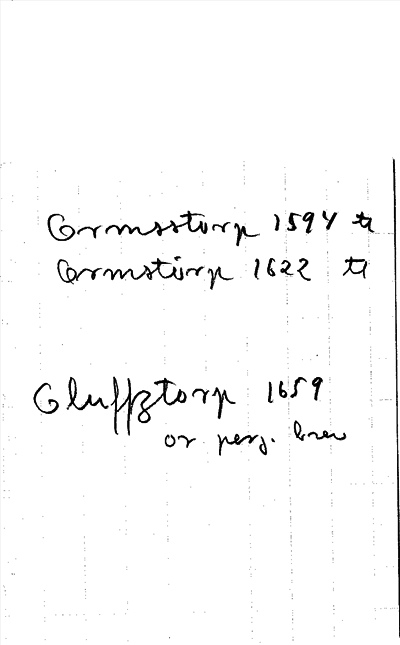 Ormsstorp 1594 tr
Ormstorp 1622 tr
Oluffztorp 1659
or perg. brev